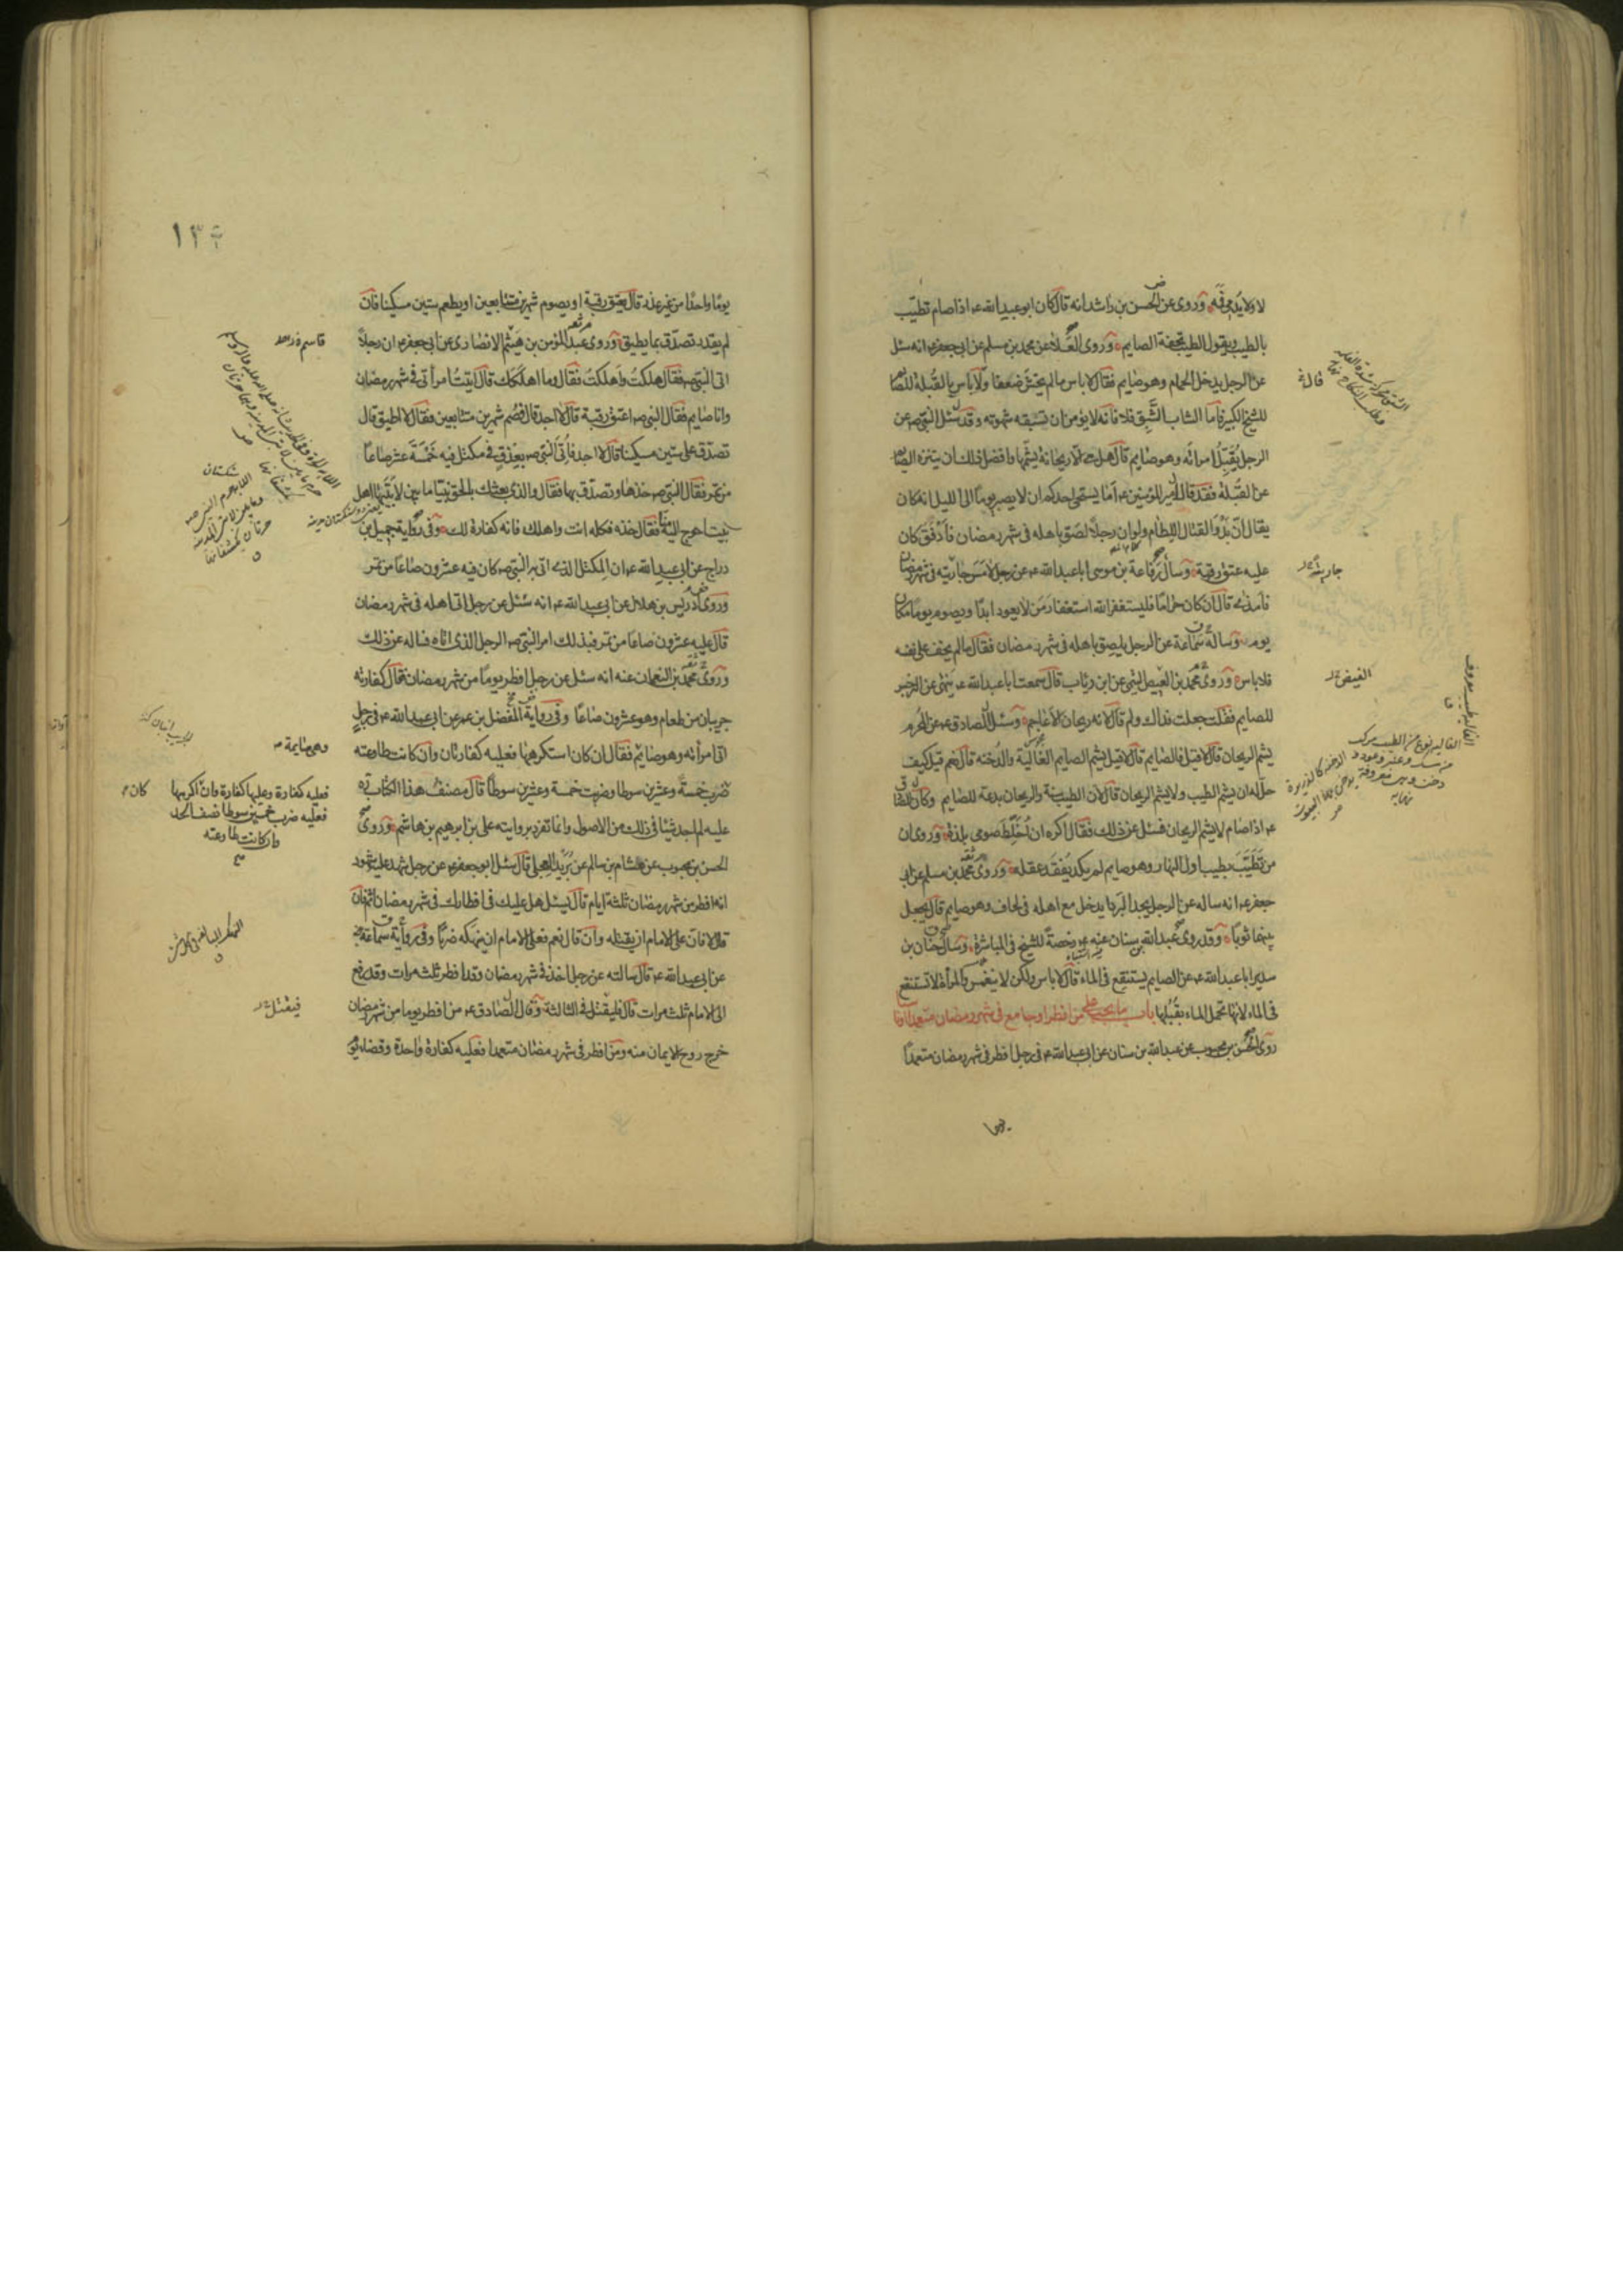 لا ولا يُدمي فَمَه وروى عن الحسن بن راشد انه قال كان ابو عبد الله ع اذا صام تطيّب
بالطيب ويقول الطيب تحفة الصايم وروى العلاء عن محمد بن مسلم عن ابي جعفر ع انه سئل
عن الرجل يدخل الحمام وهو صايم فقال لا باس مالم يخش ضعفا ولا باس بالقُبلة للصايم
للشيخ الكبير فاما الشاب الشَّبِق فلا فانه لا يؤمن ان تسبقه شهوته وقد سئل النبي ص عن
الرجل يُقَبِّل امراته وهو صايم قال هل هي الا ريحانة يشمّها وافضل ذلك ان يتنزه الصايم
عن القُبلة فقد قال امير المؤمنين ع اما يستحيي احدكم ان لا يصبر يوما الى الليل انه كان
يقال انّ بدو القتال اللطام ولو ان رجلا لصق باهله في شهر رمضان فادفق كان
عليه عتق رقبة وسأل رفاعة بن موسى ابا عبد الله ع عن رجل لامس جاريته في شهر رمضان
فامذى قال ان كان حراما فليستغفر الله استغفار من لا يعود ابدا ويصوم يوما مكان
يوم وساله سماعة عن الرجل يلصق باهله في شهر رمضان فقال مالم يخف على نفسه
فلا باس وروى محمد بن الفيض التيمي عن ابن رئاب قال سمعت ابا عبد الله ع ينهى عن النرجس
للصايم فقلت جعلت فداك ولم قال لانه ريحان الاعاجم وسئل الصادق ع عن المحرم
يشم الريحان قال لا قيل فالصايم قال لا قيل يشم الصايم الغالية والدخنة قال نعم قيل كيف
حل له ان يشم الطيب ولا يشم الريحان قال لان الطيب سنة والريحان بدعة للصايم وكان الصادق
ع اذا صام لا يشم الريحان فسئل عن ذلك فقال اكره ان اخلط صومي بلذة وروى ان
من تطيَّب بطيب اول النهار وهو صايم لم يكد يفقد عقله وروى محمد بن مسلم عن ابي
جعفر ع انه ساله عن الرجل يجد البرد ايدخل مع اهله في لحاف وهو صايم قال يجعل
بينهما ثوبا وقد روى عبد الله بن سنان عنه ع رخصة للشيخ في المباشرة وسال حنان بن
سدير ابا عبد الله ع عن الصايم يستنقع في الماء قال لا باس ولكن لا ينغمس والمراة لا تستنقع
في الماء لانها تحمل الماء بقُبُلها باب ما يجب على من افطر او جامع في شهر رمضان متعمدا او ناسيا
روى الحسن بن محبوب عن عبد الله بن سنان عن ابي عبد الله ع في رجل افطر في شهر رمضان متعمدا
يوما
قاله
جاريته
الفيض
١٣٤
يوما واحدا من غير عذر قال يعتق رقبة او يصوم شهرين متتابعين او يطعم ستين مسكينا فان
لم يقدر تصدّق بما يطيق وروى عبد المؤمن بن هيثم الانصاري عن ابي جعفر ع ان رجلا
اتى النبي ص فقال هلكتُ واهلكتُ فقال وما اهلكك قال اتيتُ امراتي في شهر رمضان
وانا صايم فقال النبي ص اعتق رقبة قال لا اجد قال فصُم شهرين متتابعين فقال لا اطيق قال
تصدّق على ستين مسكينا قال لا اجد فاُتي النبي ص بعِذق في مكتل فيه خمسة عشر صاعا
من تمر فقال النبي ص خذها وتصدّق بها فقال والذي بعثك بالحق نبيا ما بين لابتيها اهل
بيت احوج اليه منا فقال خذه فكله انت واهلك فانه كفارة لك وفي رواية جميل بن
دراج عن ابي عبد الله ع ان المكتل الذي اتى به النبي ص كان فيه عشرون صاعا من تمر
وروى ادريس بن هلال عن ابي عبد الله ع انه سئل عن رجل اتى اهله في شهر رمضان
قال عليه عشرون صاعا من تمر فبذلك امر النبي ص الرجل الذي اتاه فساله عن ذلك
وروى محمد بن النعمان عنه انه سئل عن رجل افطر يوما من شهر رمضان فقال كفارته
جريبان من طعام وهو عشرون صاعا وفي رواية المفضل بن عمر عن ابي عبد الله ع في رجل
اتى امراته وهو صايم فقال ان كان استكرهها فعليه كفارتان وان كانت طاوعته
ضرب خمسة وعشرين سوطا وضربت خمسة وعشرين سوطا قال مصنف هذا الكتاب ره
عليه لم اجد شيئا في ذلك من الاصول وانما تفرد بروايته علي بن ابرهيم بن هاشم وروى
الحسن بن محبوب عن هشام بن سالم عن بُريد العجلي قال سئل ابو جعفر ع عن رجل شهد عليه شهود
انه افطر من شهر رمضان ثلثة ايام قال يسئل هل عليك في افطارك في شهر رمضان اثم فان
قال لا فان على الامام ان يقتله وان قال نعم فعلى الامام ان ينهكه ضربا وفي رواية سماعة
عن ابي عبد الله ع قال سالته عن رجل اخذ في شهر رمضان وقد افطر ثلث مرات وقد رفع
الى الامام ثلث مرات قال فليقتل في الثالثة وقال الصادق ع من افطر يوما من شهر رمضان
خرج روح الايمان منه ومن افطر في شهر رمضان متعمدا فعليه كفارة واحدة وقضاء يوم
وهي صايمة
فعليه كفارة وعليها كفارة وان اكرهها
فعليه ضرب خمسين سوطا نصف الحد
وان كانت طاوعته
كان
فيقتل